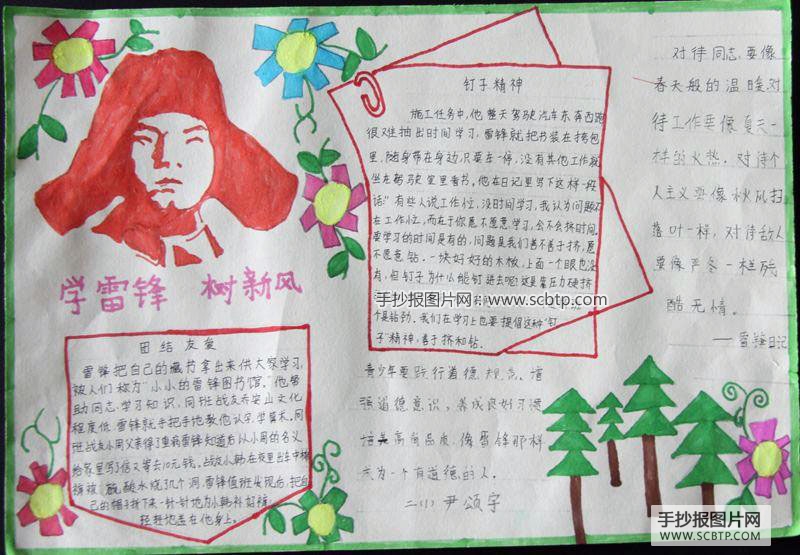 学雷锋 树新风
团结友爱
雷锋把自己的藏书拿出来供大家学习,
被人们称为“小小的雷锋图书馆。”他帮
助同志学习知识,同班战友乔安山文化
程度低,雷锋就手把手地教他认字,学算术。同
班战友小周父亲得了重病雷锋知道后以小周的名义
给家里写了信又寄去10元钱。战友小韩在夜里出车中棉
裤被硫酸水烧了几个洞,雷锋值班发现后,把自
己的帽子拆下来一针一针地为小韩补好裤
轻轻地盖在他身上。
钉子精神
施工任务中,他整天驾驶汽车东奔西跑
很难抽出时间学习,雷锋就把书装在挎包
里,随身带在身边,只要车一停,没有其他工作就
坐在驾驶室里看书。他在日记里写下这样一段
话:”有些人说工作忙,没时间学习,我认为问题不
在工作忙,而在于你愿不愿意学习,会不会挤时间。
要学习的时间是有的,问题是我们善不善于挤,愿
不愿意钻。一块好好的木板,上面一个眼也没
有,但钉子为什么能钉进去呢?这是靠压力硬挤
个是钻劲。我们在学习上也要提倡这种“钉
子”精神,善于挤和钻。
对待同志要像
春天般的温暖,对
待工作要像夏天一
样的火热,对待个
人主义要像秋风扫
落叶一样,对待敌人
要像严冬一样残
酷无情。
——雷锋日记
青少年要践行道德规范,增
强道德意识,养成良好习惯
培养高尚品质,像雷锋那样
成为一个有道德的人。
二(1) 尹颂宇
手抄报图片网:www.scbtp.com
手抄报图片网
WWW.SCBTP.COM